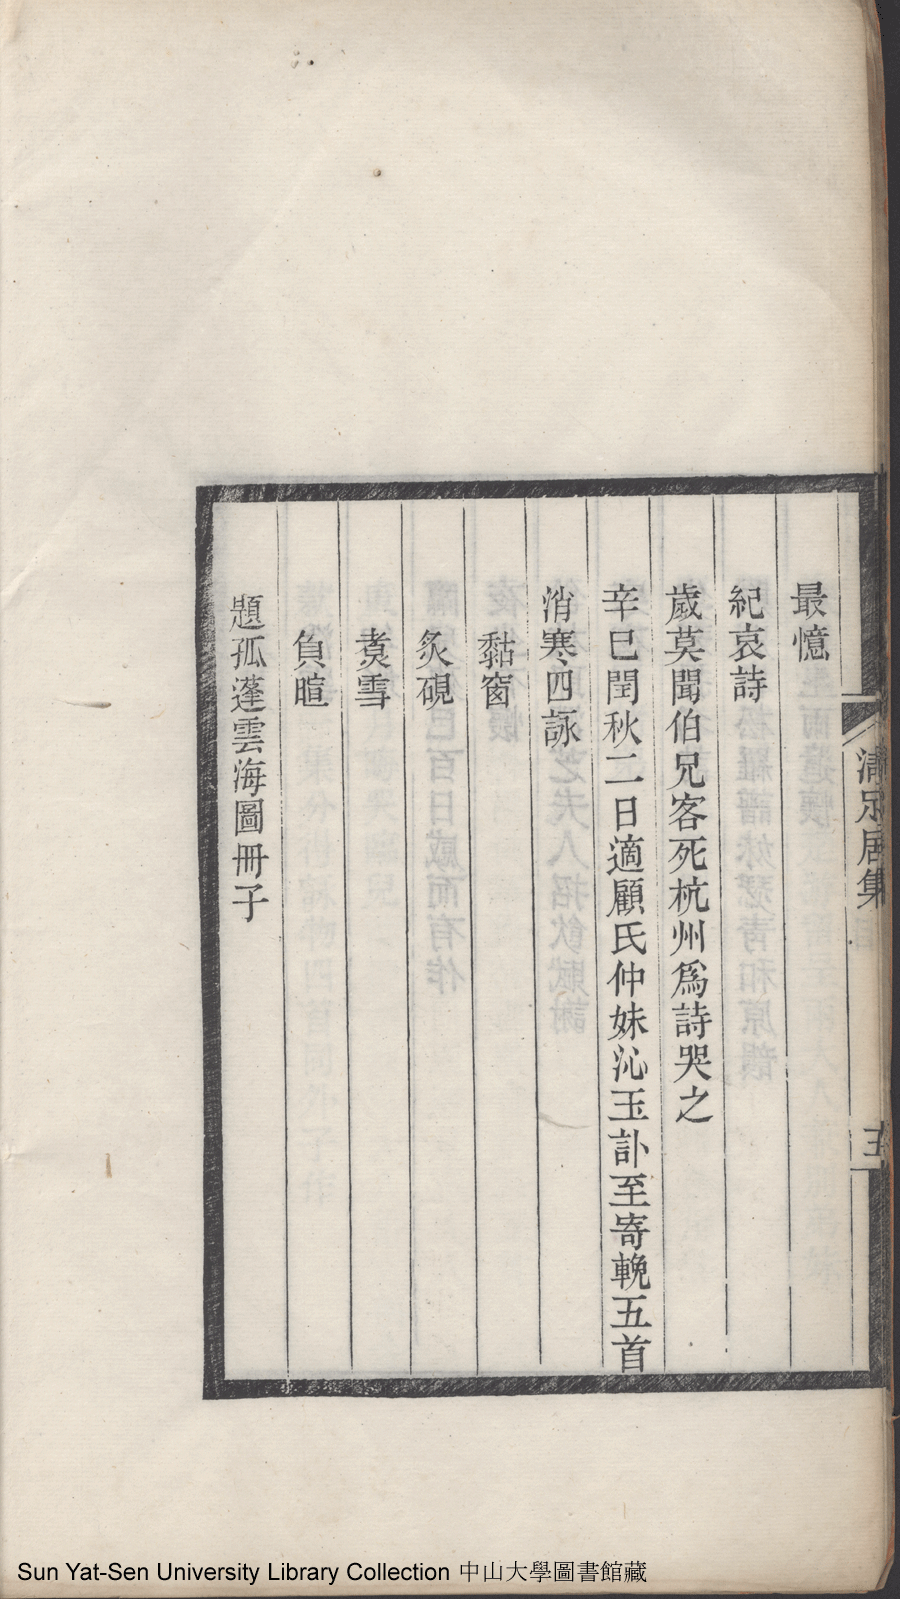 最憶
紀哀詩
歲莫聞伯兄客死杭州爲詩哭之
辛巳閏秋二日適顧氏仲妹沁玉訃至寄輓五首
消寒四詠
黏窗
炙硯
煑雪
負暄
題孤蓬雲海圖冊子
清足居集
五
Sun Yat-Sen University Library Collection 中山大學圖書館藏